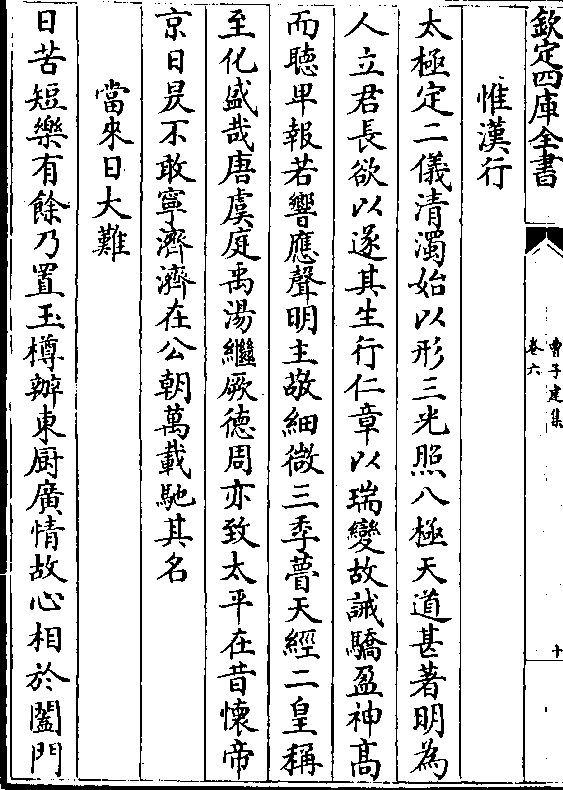 欽定四庫全書
曹子建集
卷六
十
惟漢行
太極定二儀清濁始以形三光照八極天道甚著明為
人立君長欲以遂其生行仁章以瑞變故誡驕盈神髙
而聽卑報若響應聲明主敬細微三季瞢天經二皇稱
至化盛哉唐虞庭禹湯繼厥德周亦致太平在昔懷帝
京日昃不敢寧濟濟在公朝萬載馳其名
當來日大難
日苦短樂有餘乃置玉樽辦東厨廣情故心相於闔門